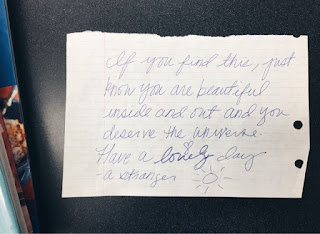 If you find this, just
know you are beautiful
inside and out and you
deserve the universe.
Have a lovely day
-a stranger